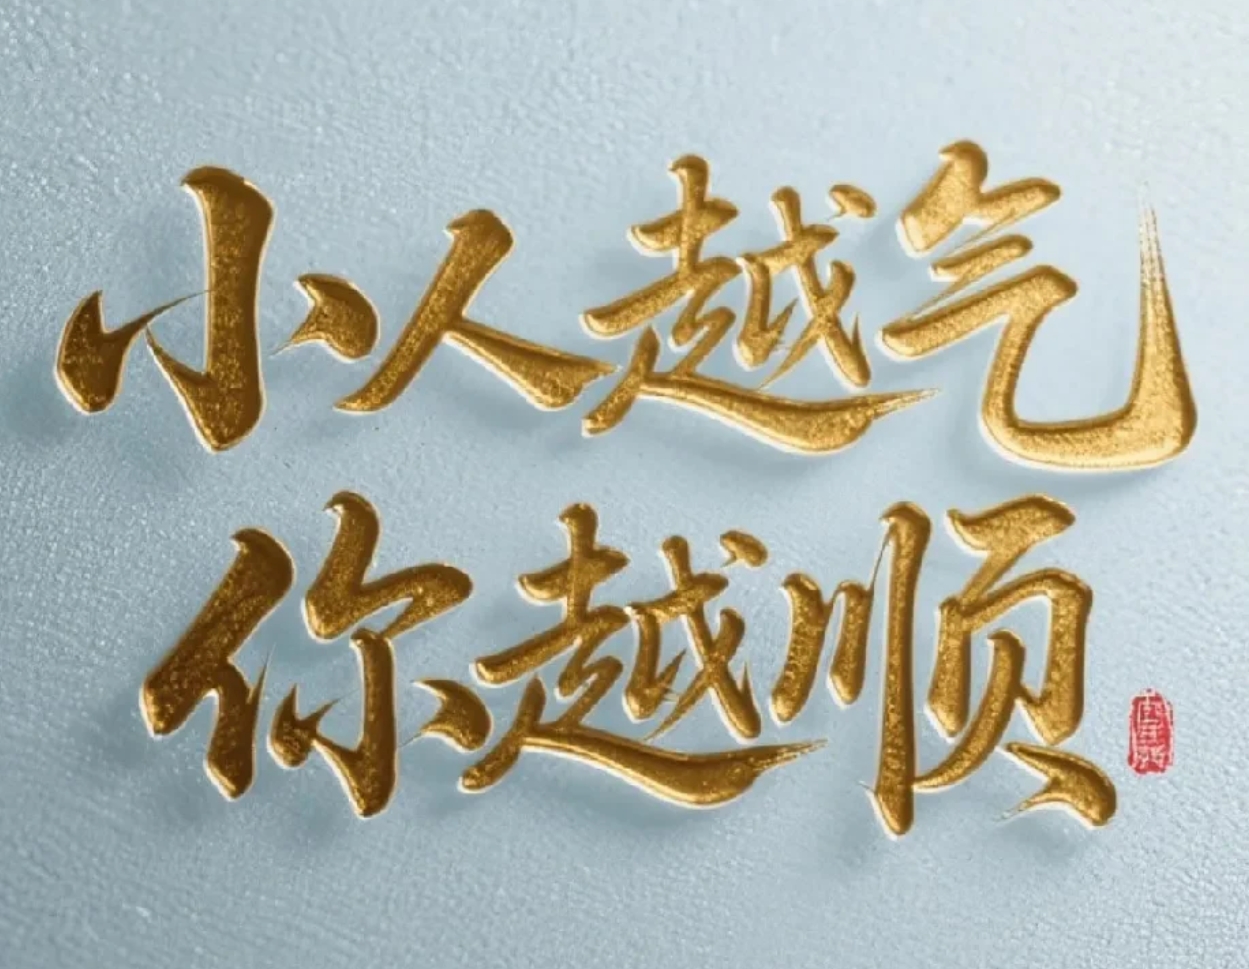 小人越气
你越顺